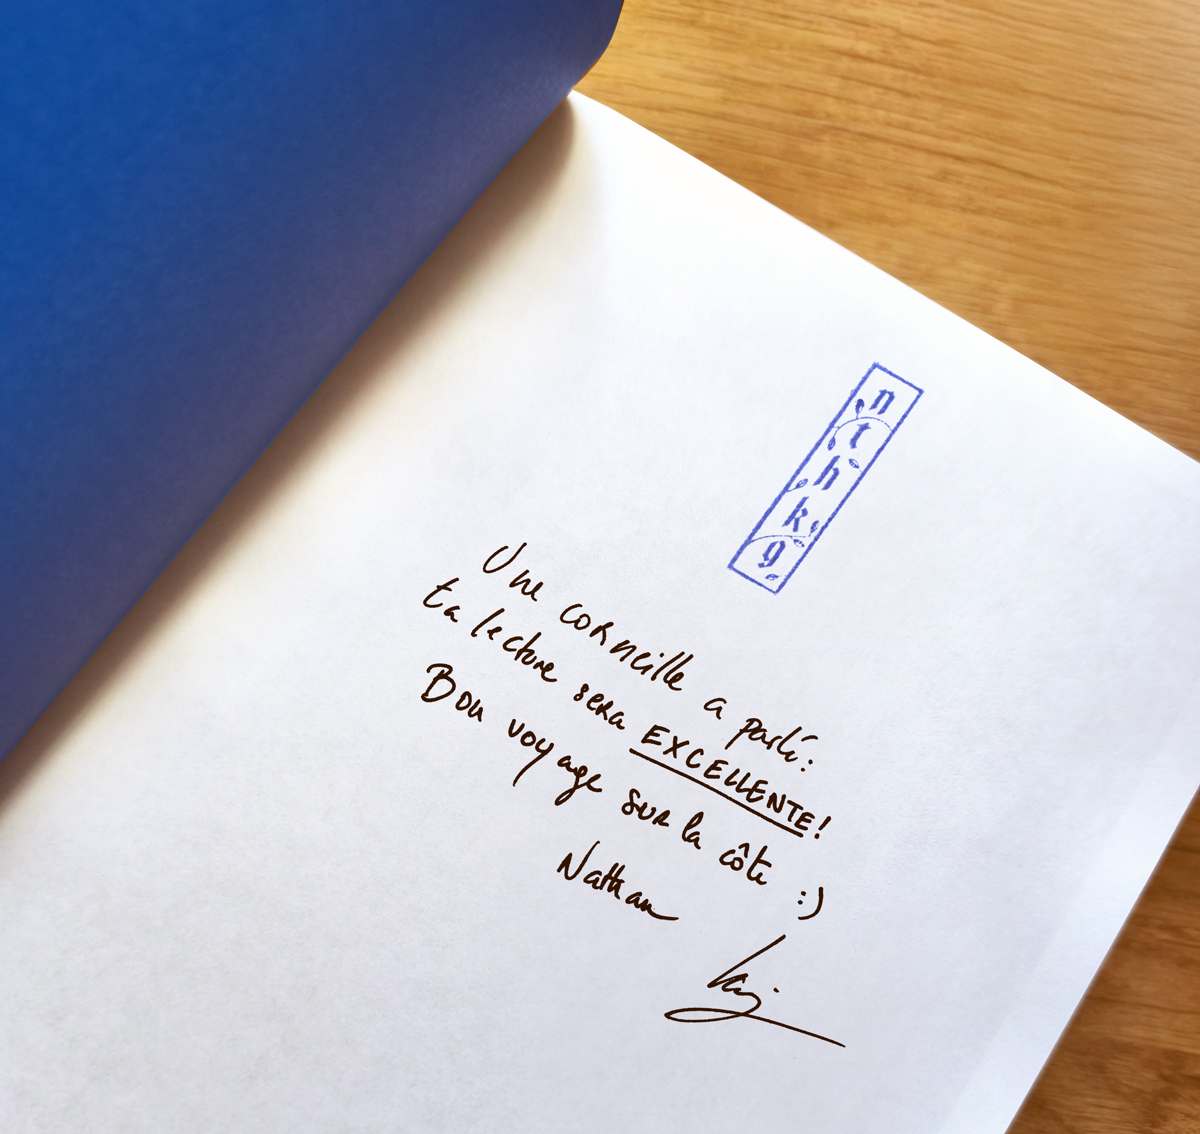 nthkg
Une corneille a parlé:
ta lecture sera EXCELLENTE!
Bon voyage sur la côte :)
Nathan